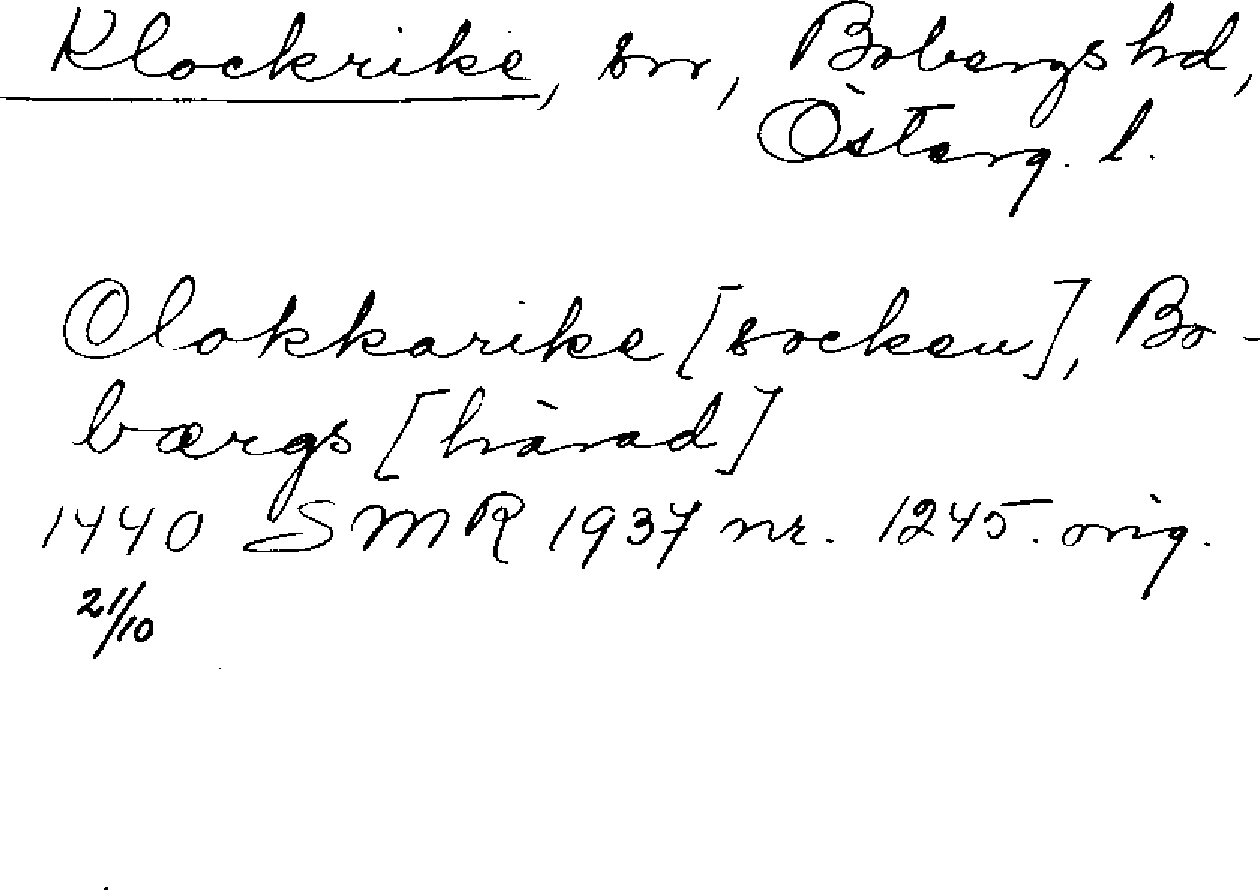 Klockrike, sn, Bobergs hd,
Österg. l.
Clokkarike [socken], Bo-
bærgs [härad]
1440 SMR 1937 nr. 1245. orig.
21/10